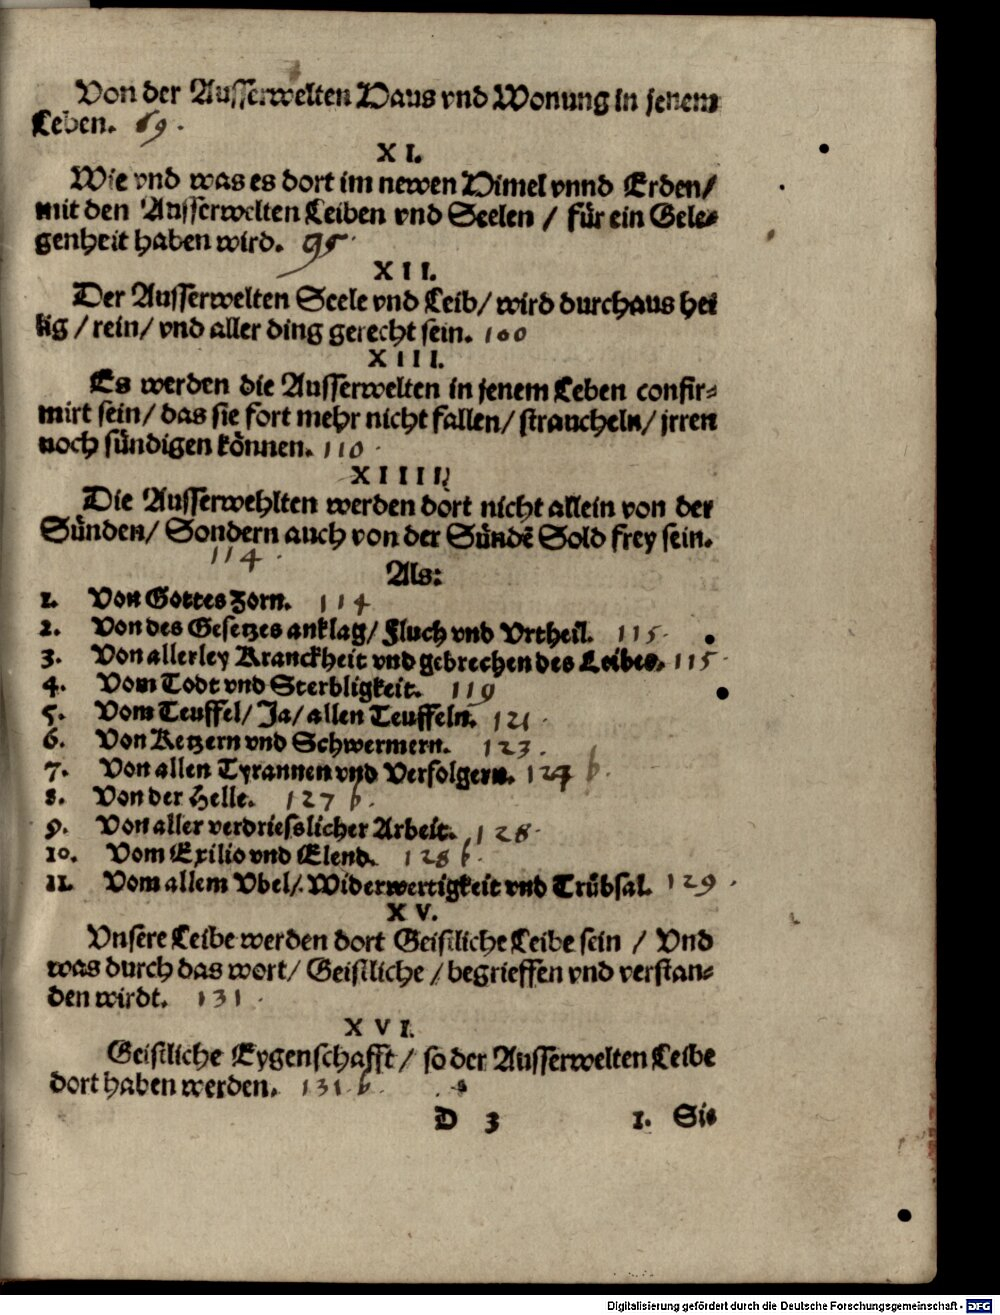 Von der Ausserwelten Haus vnd Wonung in jenem
Leben. 69.
XI.
Wie vnd was es dort im newen Himel vnnd Erden/
mit den Ausserwelten Leiben vnd Seelen / für ein Gele-
genheit haben wird. 95.
XII.
Der Ausserwelten Seele vnd Leib/ wird durchaus hei
lig / rein/ vnd aller ding gerecht sein. 100
XIII.
Es werden die Ausserwelten in jenem Leben confir-
mirt sein/ das sie fort mehr nicht fallen/ straucheln/ jrren
noch sündigen können. 110.
XIIII.
Die Ausserwehlten werden dort nicht allein von der
Sünden/ Sondern auch von der Sündē Sold frey sein.
114.
Als:
1. Von Gottes zorn. 114
2. Von des Gesetzes anklag/ Fluch vnd Vrtheil. 115.
3. Von allerley Kranckheit vnd gebrechen des Leibes. 115.
4. Vom Todt vnd Sterbligkeit. 119
5. Vom Teuffel/ Ja/ allen Teuffeln. 121.
6. Von Ketzern vnd Schwermern. 123.
7. Von allen Tyrannen vnd Verfolgern. 124 b.
8. Von der Helle. 127 b.
9. Von aller verdriesslicher Arbeit. 128.
10. Vom Exilio vnd Elend. 128 b.
11. Vom allem Vbel/ Widerwertigkeit vnd Trübsal. 129.
XV.
Vnsere Leibe werden dort Geistliche Leibe sein / Vnd
was durch das wort/ Geistliche / begrieffen vnd verstan-
den wirdt. 131.
XVI.
Geistliche Eygenschafft / so der Ausserwelten Leibe
dort haben werden. 131. b.
D 3 1. Sie
Digitalisierung gefördert durch die Deutsche Forschungsgemeinschaft - DFG